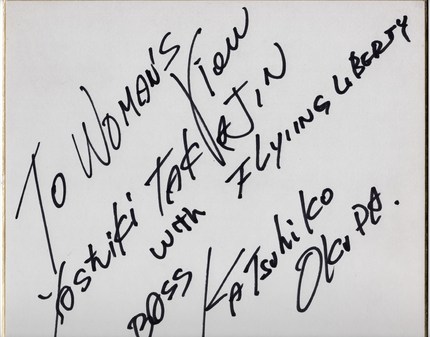 TO WOMAN'S View
Yoshiki TAKAJIN
with FLYIING LiBERTY
BOSS KATSUHiKO
OKUDA.